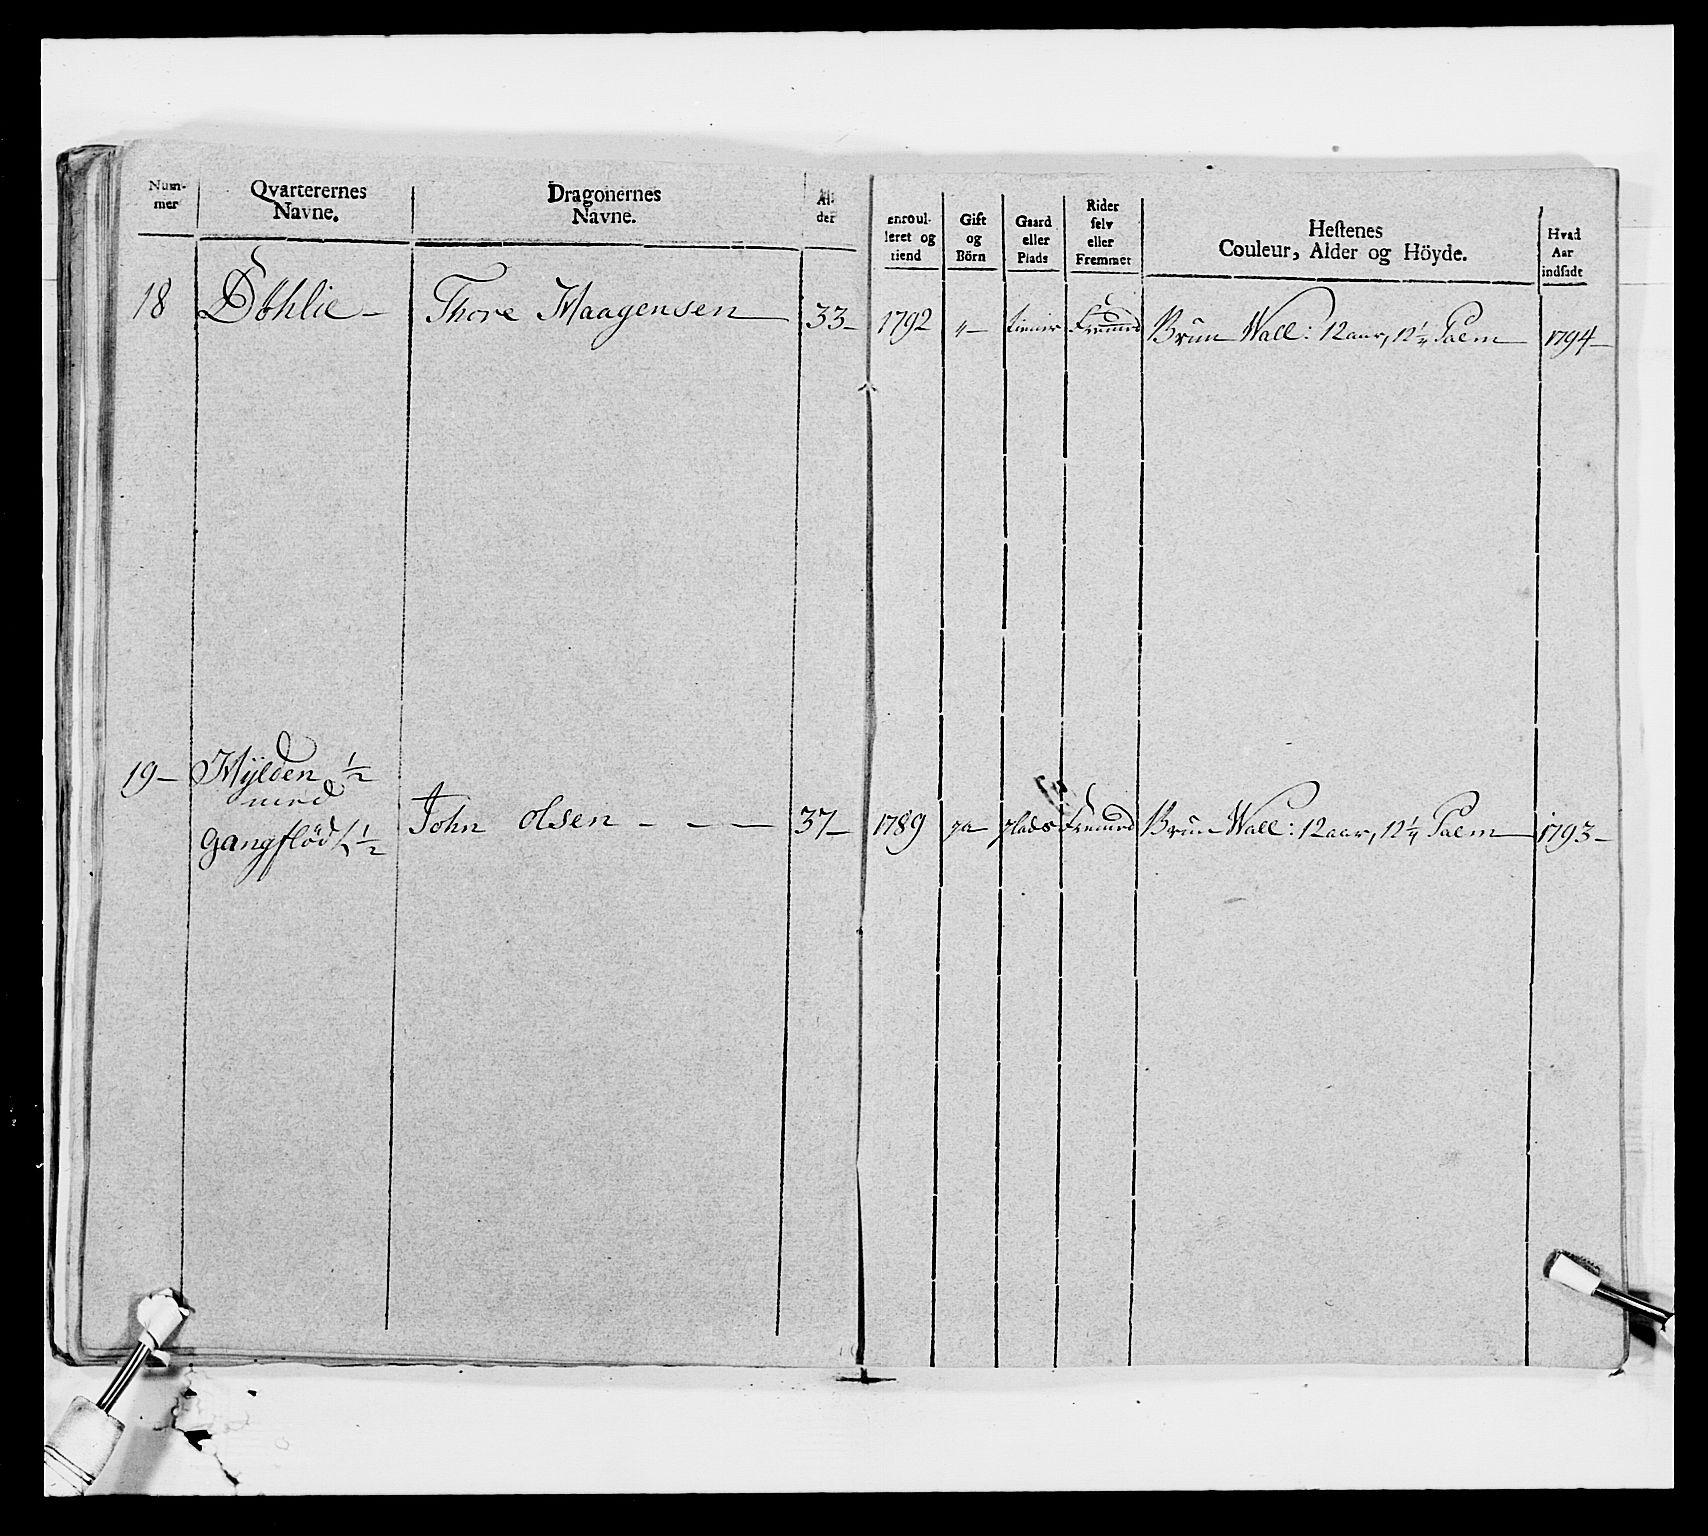 Num-
mer
Qvarterernes
Navne.
Dragonernes
Navne.
Al-
der
enroul-
leret og
tiend
Gift
og
Börn
Gaard
eller
Plads
Rider
selv
eller
Fremmet
Hestenes
Couleur, Alder og Höyde.
Hvad
Aar
indsadt
18 Döhlie - Thore Haagensen 33- 1792 "- tiener Fremed Brun Wall: 12 aar, 12 1/4 Palm 1794-
19- Hylden 1/2
med
Gangflöd 1/2
John Olsen - - - 37- 1789 ja plads Fremed Brun Wall: 12 aar, 12 1/4 Palm 1793-